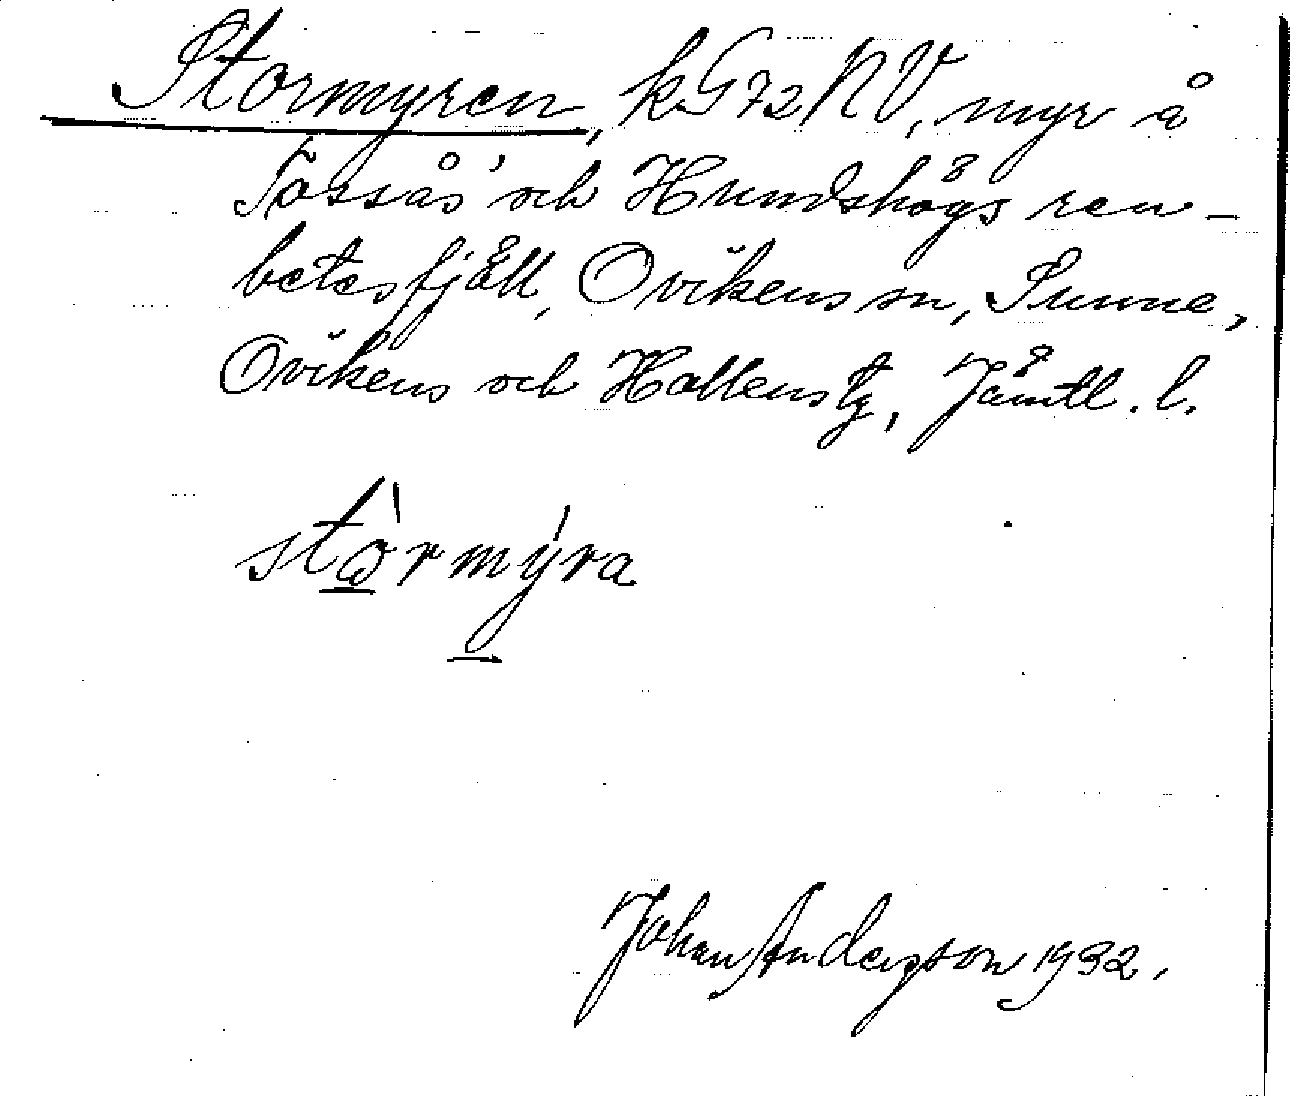 Stormyren, kG72NV, myr å
Tåssås' och Hundshögs ren-
betesfjäll, Ovikens sn, Sunne,
Ovikens och Hallens tg, Jämtl. l.
stòrmýra
Johan Anderson 1932.